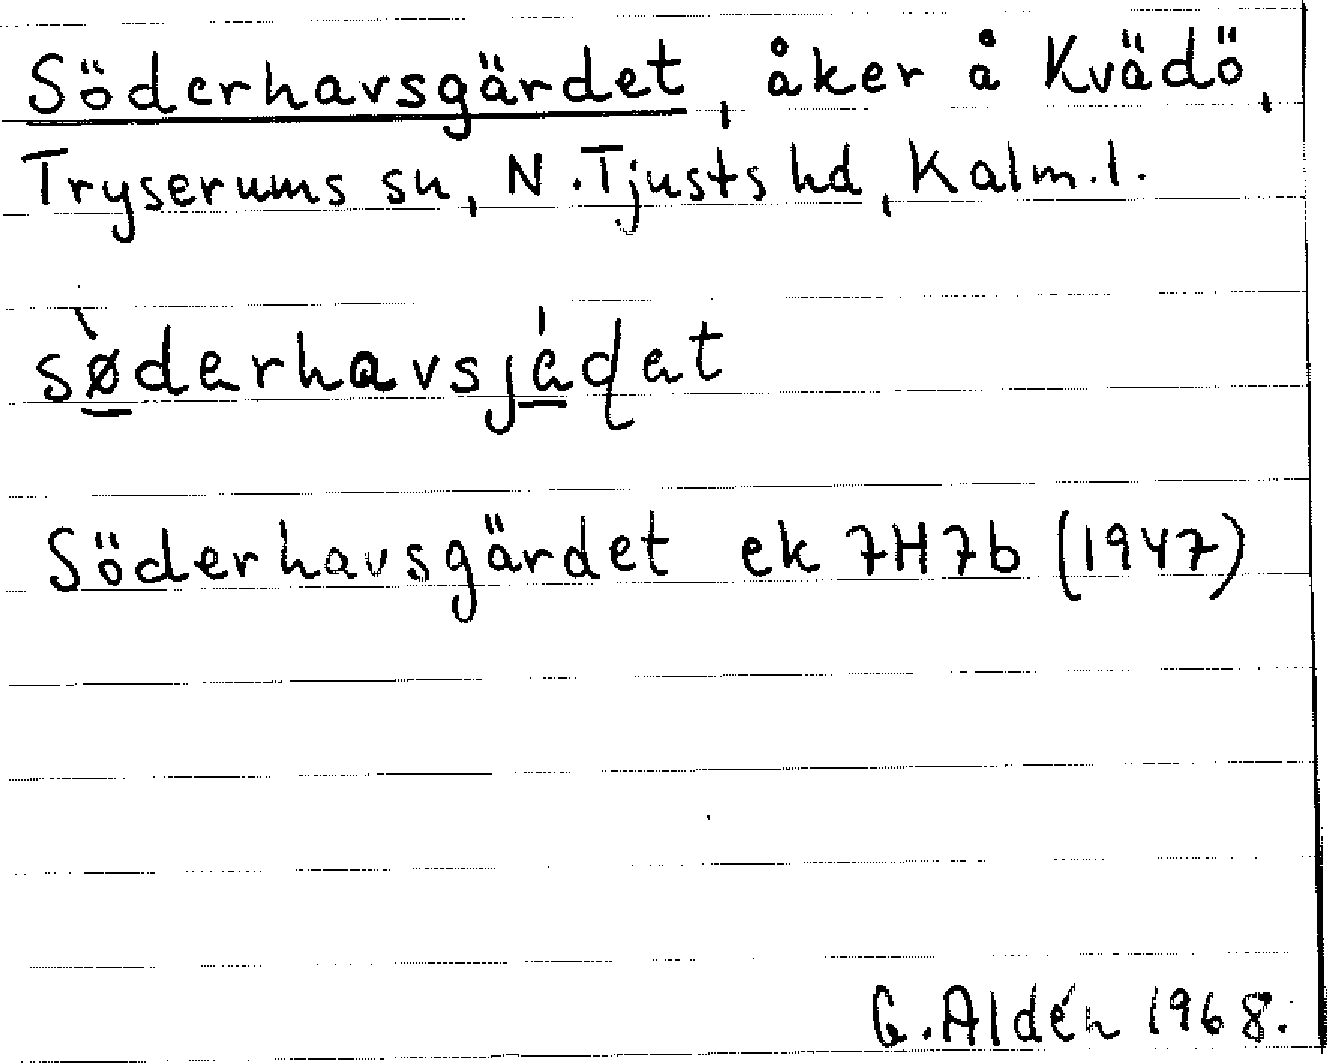 Söderhavsgärdet, åker å Kvädö,
Tryserums sn, N. Tjusts hd, Kalm. l.
sø̀derhavsjáɖet
Söderhavsgärdet ek 7H7b (1947)
G. Aldén 1968.